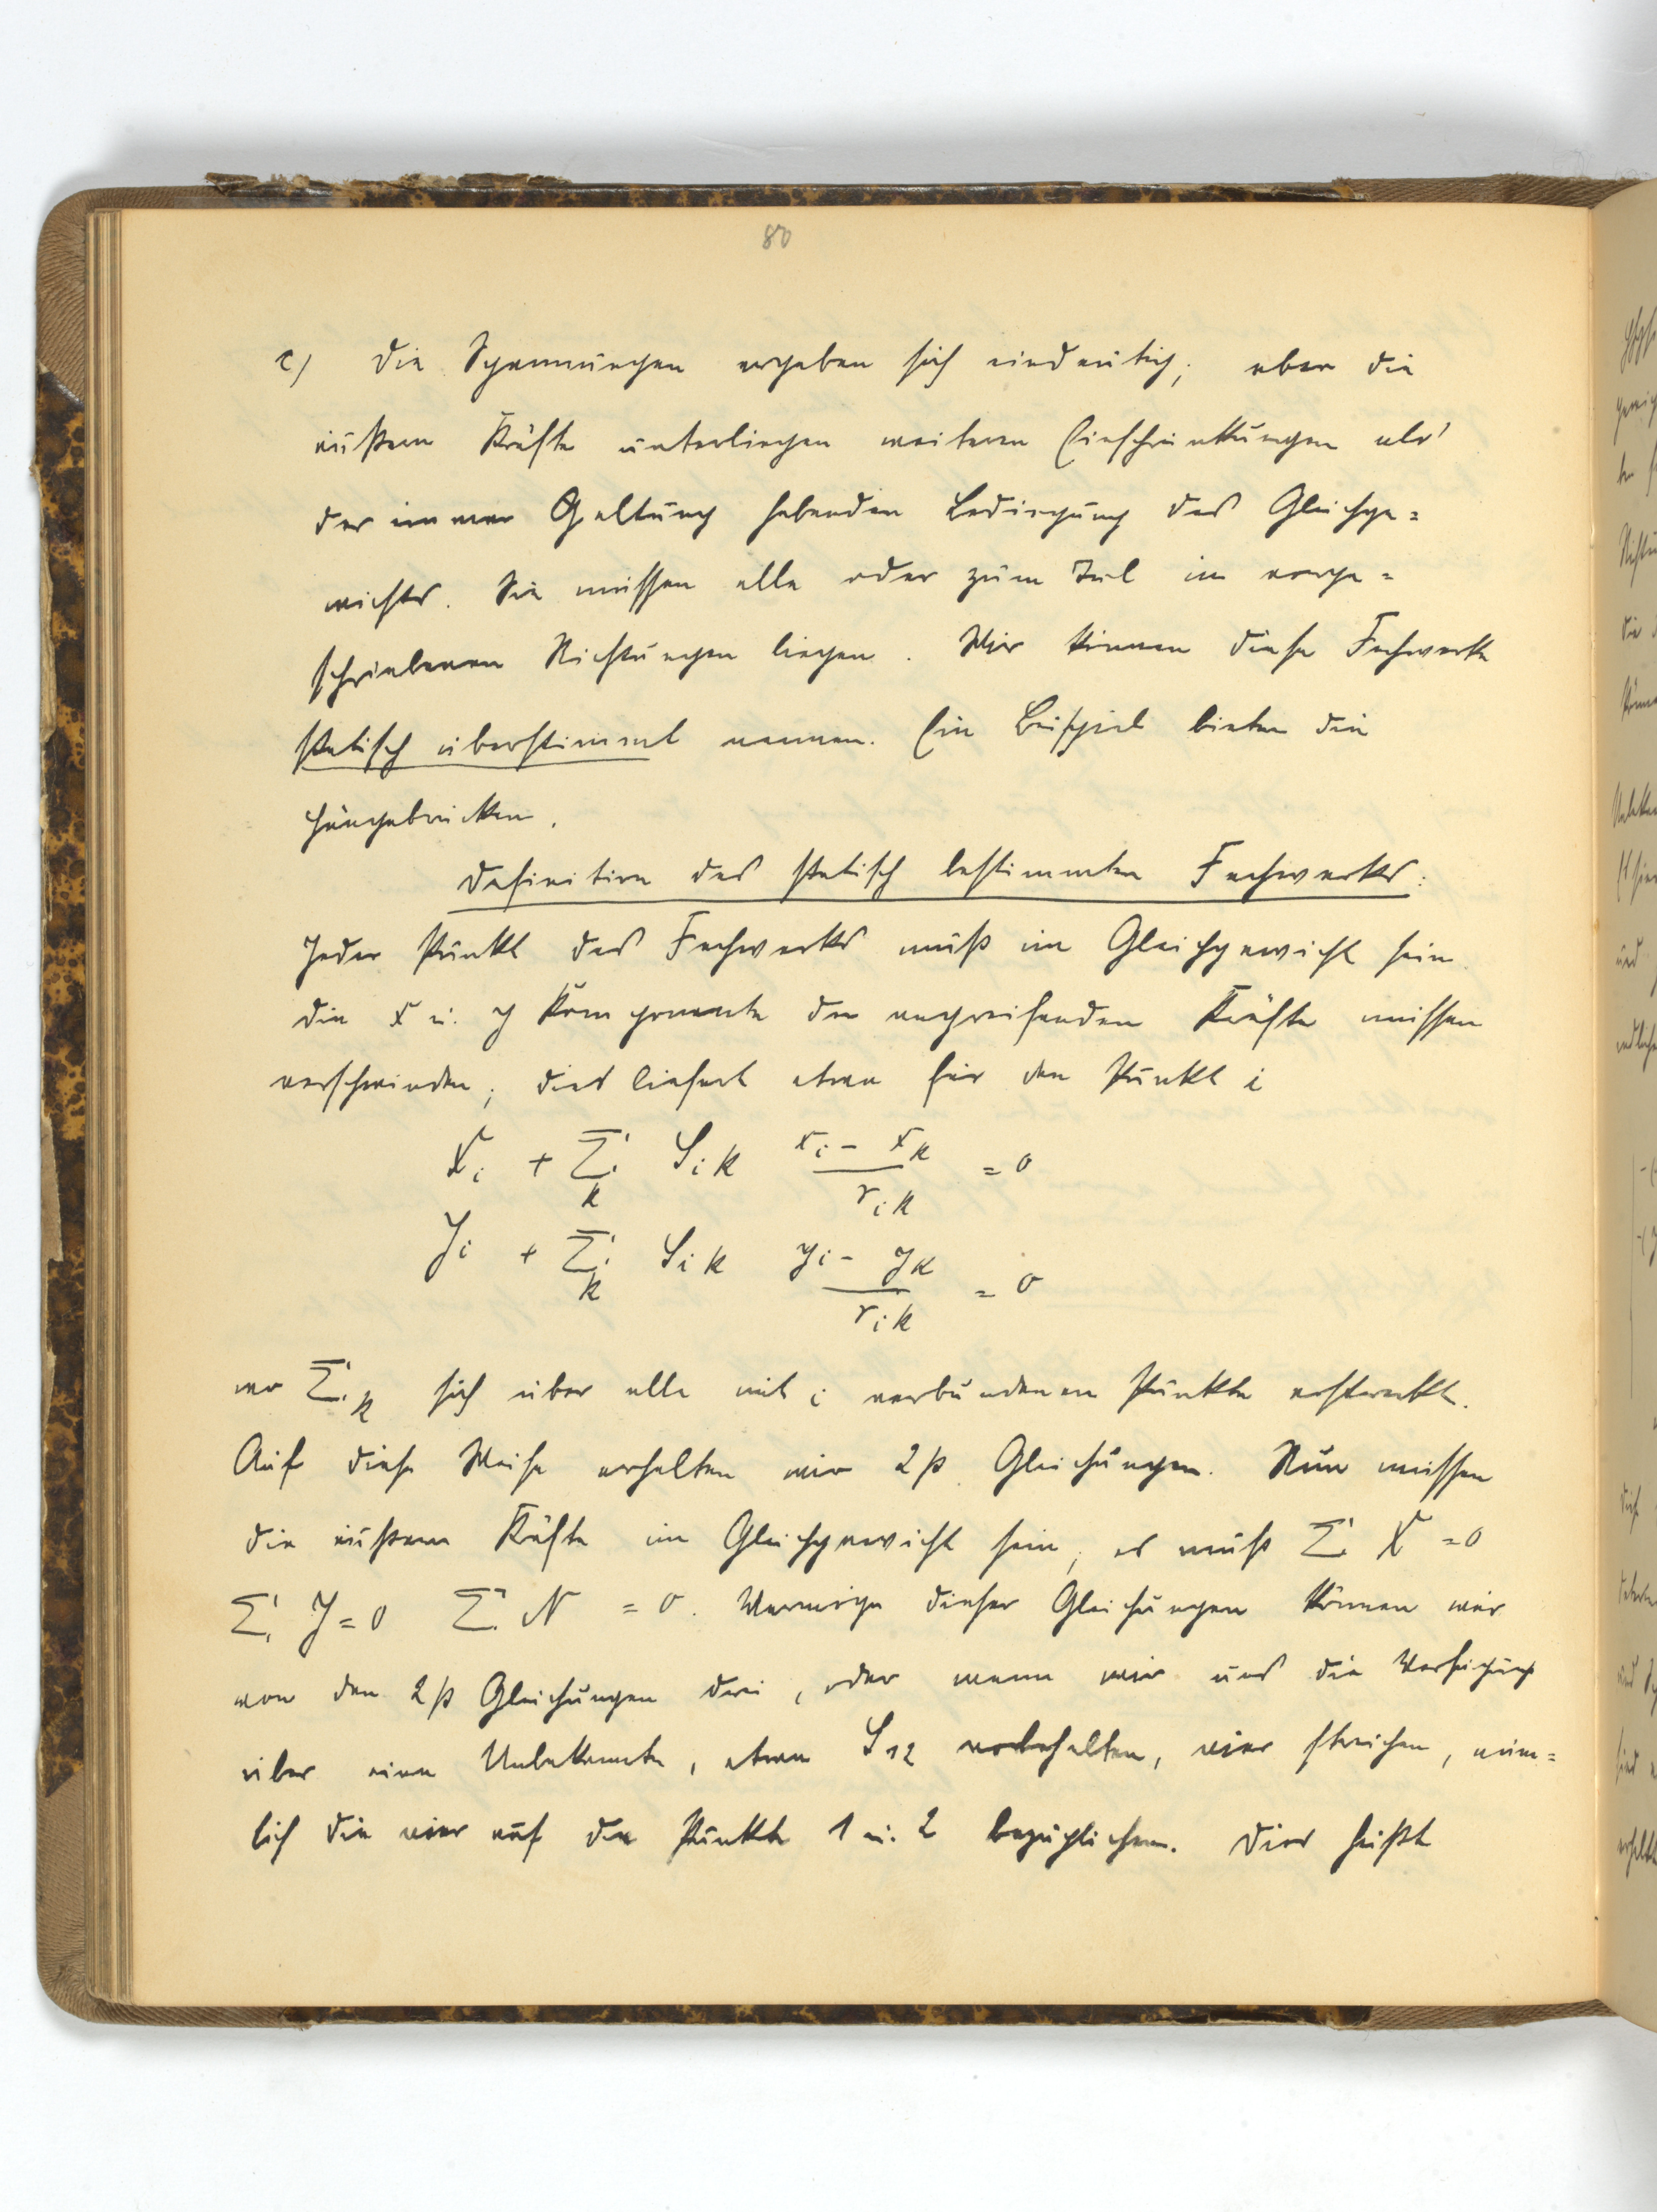 80
c) Die Spannungen ergeben sich eindeutig; aber die
äußern Kräfte unterliegen weiteren Einschränkungen als
der immer Geltung habenden Bedingung des Gleichge=
wichts. Sie müssen alle oder zum Teil in vorge=
schriebenen Richtungen liegen. Wir können diese Fachwerke
statisch überstimmt nennen. Ein Beispiel bieten die
Hängebrücken.
Definition des statisch bestimmten Fachwerks:
Jeder Punkt des Fachwerks muß im Gleichgewicht sein
die x u. y Komponente der angreifenden Kräfte müssen
verschwinden; dies liefert etwa für den Punkt i
X_i + Σ_k S_{ik} (x_i - x_k)/r_{ik} = 0
Y_i + Σ_k S_{ik} (y_i - y_k)/r_{ik} = 0
wo Σ_k sich über alle mit i verbundenen Punkte erstreckt.
Auf diese Weise erhalten wir 2p Gleichungen. Nun müssen
die äußern Kräfte im Gleichgewicht sein, es muß Σ X = 0
Σ Y = 0 Σ N = 0. Vermöge dieser Gleichungen können wir
von den 2p Gleichungen drei, oder wenn wir uns die Verfügung
über eine Unbekannte, etwa S_{12} vorbehalten, vier streichen, näm=
lich die vier auf die Punkte 1 u. 2 bezüglichen. Dies heißt